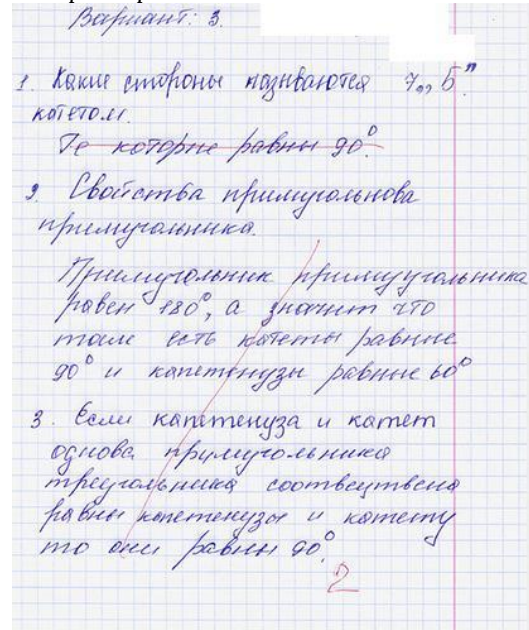 Вариант: 3.
1. Какие стороны называются 7,, Б"
катетом.
Те которые равны 90°.
2. Свойства примуголънова
примуголъника.
Примуголъник примууголъника
равен 180°, а значит что
там есть катеты равные
90° и капетенузы равные 60°
3. Если капетенуза и катет
однова примуголъника
треугольника соотвецтвена
равны капетенузы и катету
то они равны 90°.
2